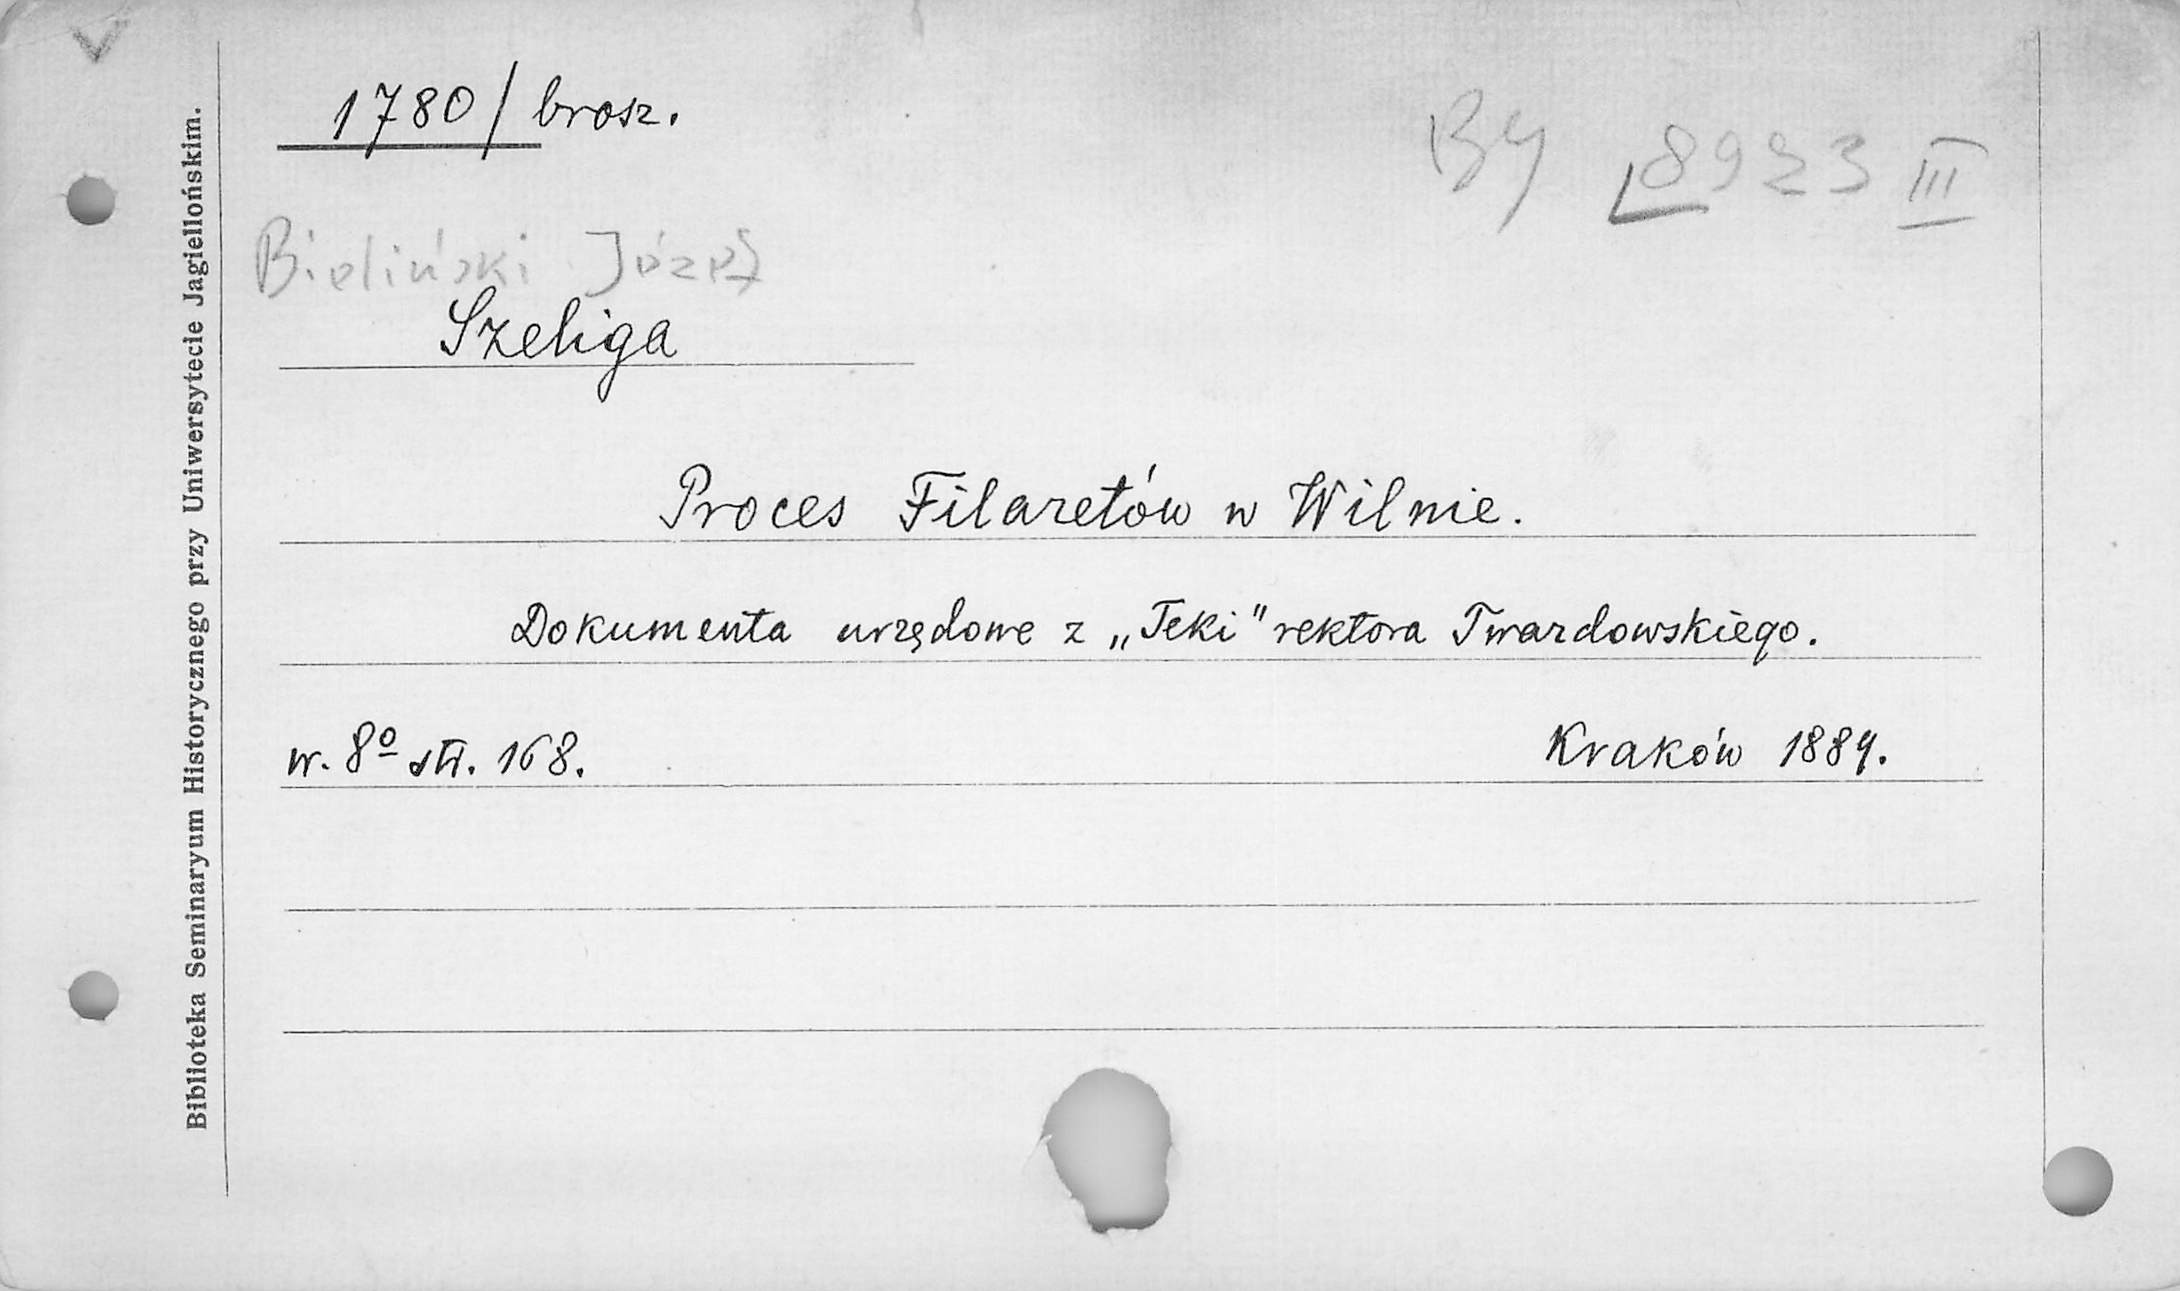 1780/brosz.
By 8923 III
Bieliński Józef
Szeliga
Proces Filaretów w Wilnie.
Dokumenta urzędowe z „Teki" rektora Twardowskiego.
w. 8º str. 168. Kraków 1889.
Biblioteka Seminaryum Historycznego przy Uniwersytecie Jagiellońskim.